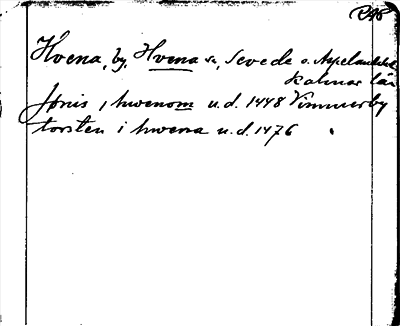 Hvena, by, Hvena sn, Sevede o. Aspelands hd
Kalmar län
Jønis i hwenom u.d. 1448 Vimmerby
torsten i hwena u.d. 1476